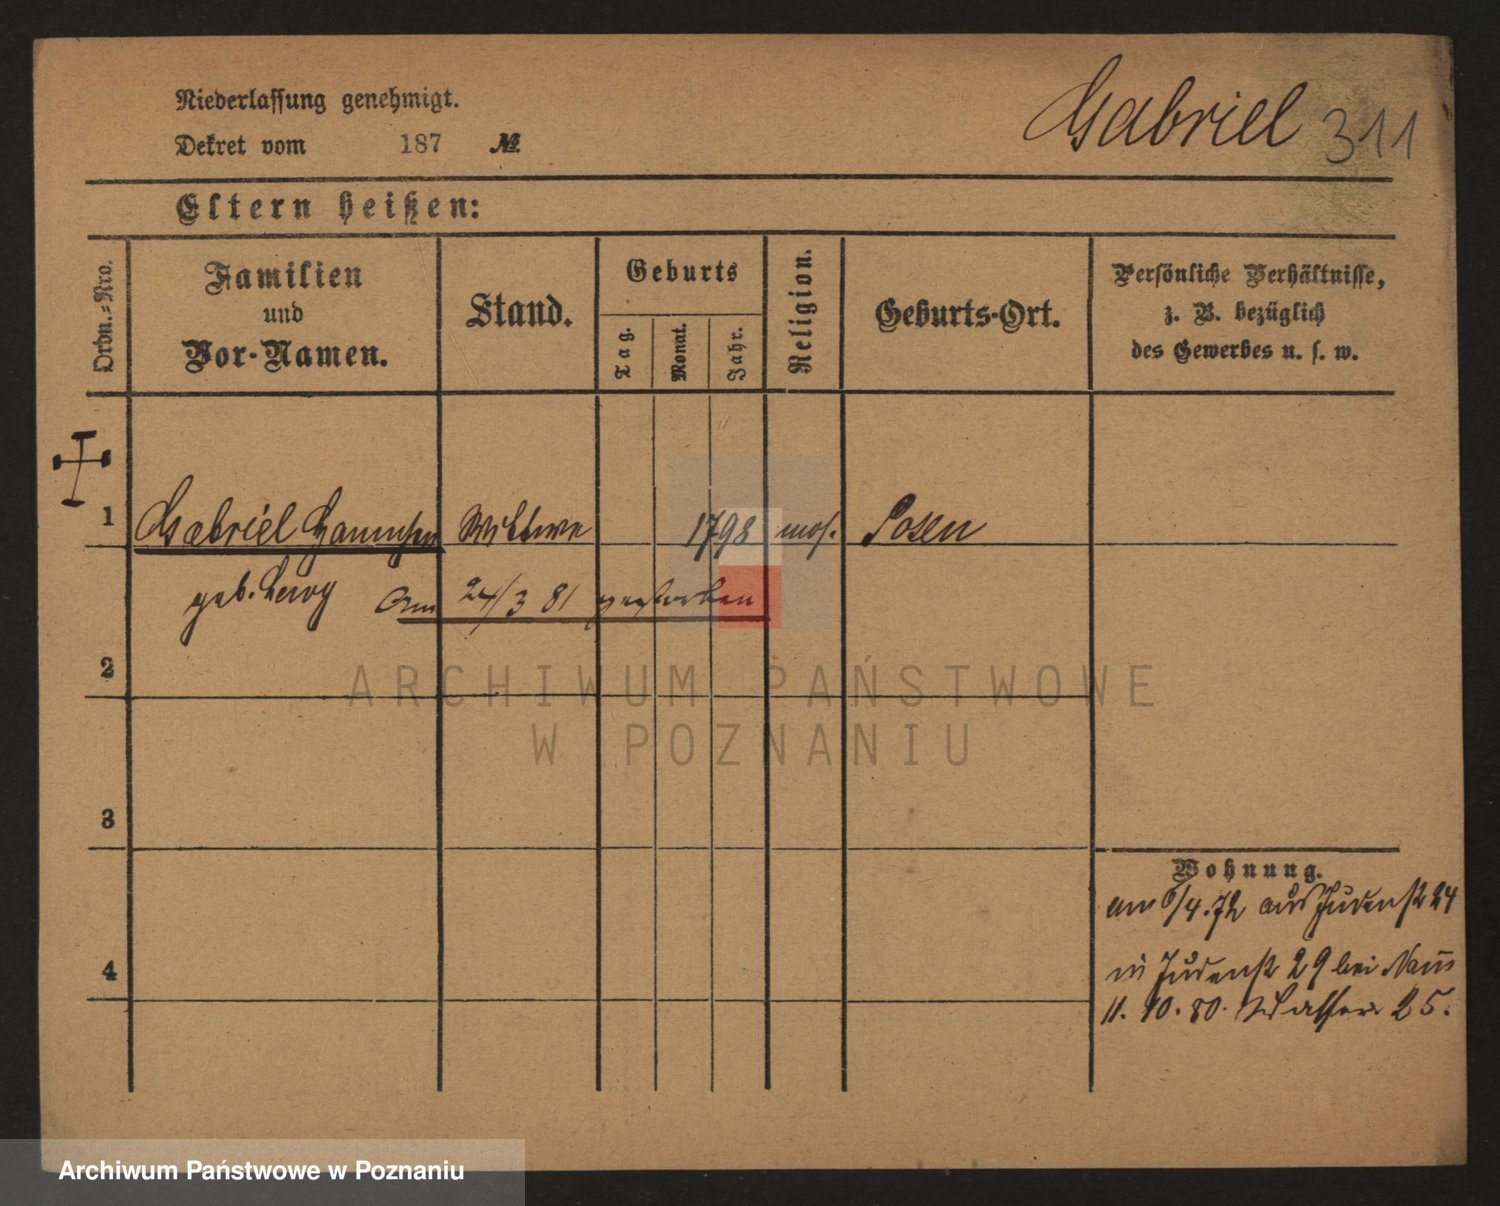 Niederlassung genehmigt.
Dekret vom 187 №
Gabriel 311
Eltern heißen:
Ordn.-Nro.
Familien
und
Vor-Namen.
Stand.
Geburts
Tag.
Monat.
Jahr.
Religion.
Geburts-Ort.
Persönliche Verhältnisse,
z. B. bezüglich
des Gewerbes u. s. w.
1 Gabriel Wittwe 1798 mos. Posen
geb. Levy Am 24/3 81 gestorben
2
3
4
Wohnung.
am 6/4.72 aus Judenst 24
in Judenst 29 bei
11. 10. 80. Wasser 25.
ARCHIWUM PAŃSTWOWE
W POZNANIU
Archiwum Państwowe w Poznaniu